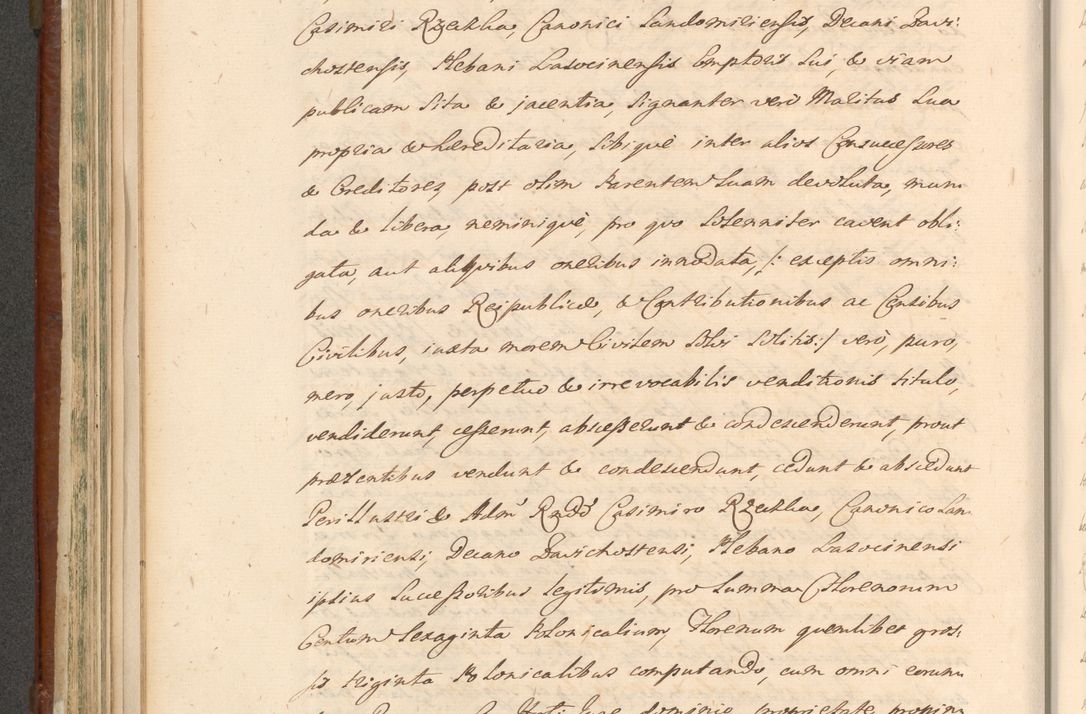 Casimiri Rzeckha, Canonici Sandomiriensis, Decani Zavi:
chostensis, Plebani Lasocinensis Emptoris sui, & viam
publicam sita & jacentia, signanter verò Maritus sua
propria & hereditaria, sibique inter alios Consuccessores
& Creditores, post olim Parentem suam devoluta, mun
da & libera, neminiquè, pro quo solenniter cavent obli:
gata, aut aliquibus oneribus innodata, /: exceptis omni:
bus oneribus Reipublicæ, & Contributionibus ac Censibus
Civilibus, iuxta morem Civitem solvi solitis :/ verò, puro,
mero, justo, perpetuo & irrevocabilis venditionis titulo,
vendiderunt, cesserunt, abscesserunt & condescenderunt, prout
præsentibus vendunt & condescendunt, cedunt & abscedunt
Perillustri & Adm. Rndo Casimiro Rzeckha, Canonico San
domiriensi, Decano Zavichostensi, Plebano Lasocinensi
ipsius Successoribus legitimis, pro Summa Florenorum
Centum Sexaginta Polonicalium, Florenum quemlibet gros:
sis triginta Polonicalibus computando, cum omni eorum
dominio proprietate